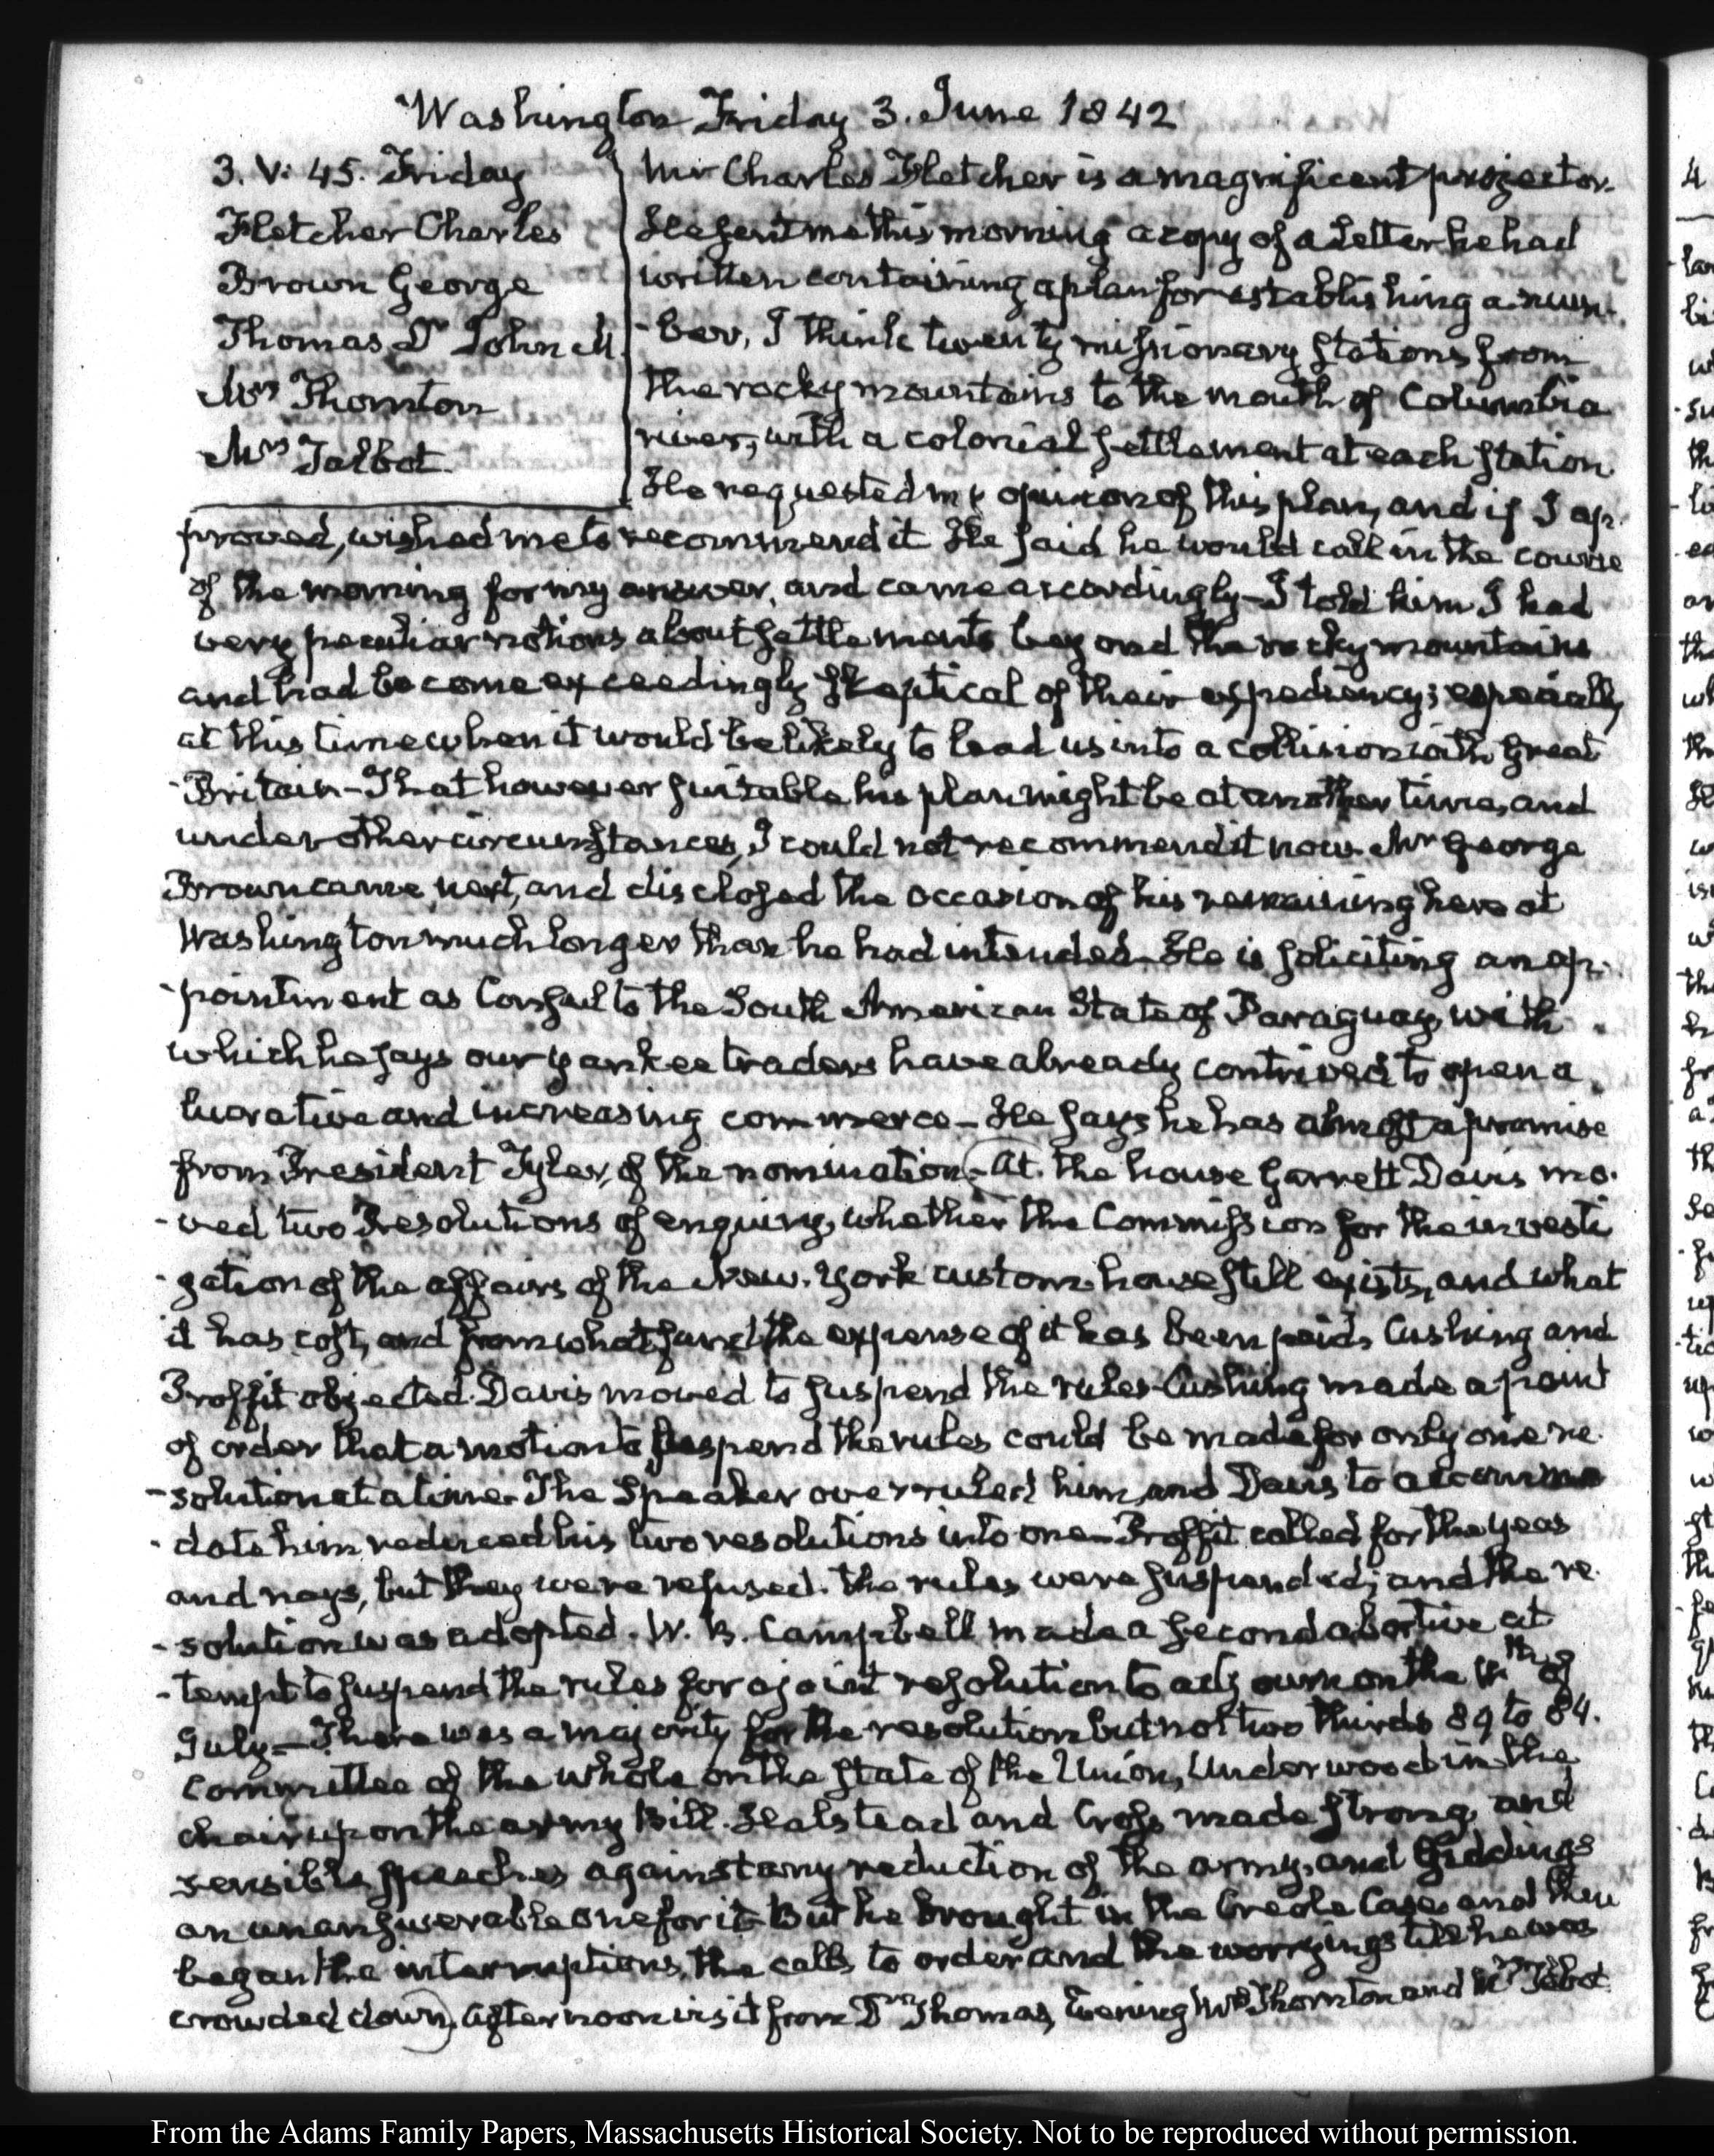 Washington Friday 3. June 1842
3. V: 45. Friday
Fletcher Charles
Brown George
Thomas Dr John M.
Mrs Thornton
Mrs Talbot
Mr Charles Fletcher is a magnificent projector.
He sent me this morning a copy of a Letter he had
written containing a plan for establishing a num-
-ber, I think twenty missionary stations from
the rocky mountains to the mouth of Columbia
river, with a colonial settlement at each station.
He requested my opinion of this plan, and if I ap-
proved, wished me to recommend it. He said he would call in the course
of the morning for my answer, and came accordingly - I told him I had
very peculiar notions about settlements beyond the rocky mountains
and had become exceedingly skeptical of their expediency; especially
at this time when it would be likely to lead us into a collision with Great
-Britain - That however suitable his plan might be at another time, and
under other circumstances, I could not recommend it now. Mr George
Brown came next, and disclosed the occasion of his remaining here at
Washington much longer than he had intended. He is soliciting an ap-
-pointment as Consul to the South American State of Paraguay, with
which he says our yankee traders have already contrived to open a
lucrative and increasing commerce - He says he has almost a promise
from President Tyler, of the nomination - At the house Garrett Davis mo-
-ved two Resolutions of enquiry, whether the Commission for the investi
-gation of the affairs of the New-York custom-house still exists, and what
it has cost, and from what fund the expense of it has been paid. Cushing and
Proffit objected. Davis moved to suspend the rules - Cushing made a point
of order that a motion to suspend the rules could be made for only one re-
-solution at a time. The Speaker overruled him, and Davis to accommo
-date him reduced his two resolutions into one - Proffit called for the yeas
and nays, but they were refused. the rules were suspended; and the re-
-solution was adopted. W. B. Campbell made a second abortive at
-tempt to suspend the rules for a joint resolution to adjourn on the th of
July - There was a majority for the resolution but not two thirds 89 to 84.
Committee of the whole on the state of the Union, Underwood in the
chair upon the army Bill. Halstead and Cross made strong and
sensible speeches against any reduction of the army, and Giddings
an unanswerable one for it - But he brought in the Creole Case, and then
began the interruptions, the calls to order and the worryings till he was
crowded down. Afternoon visit from Dr Thomas, Evening Mrs Thornton and Mrs Talbot.
From the Adams Family Papers, Massachusetts Historical Society. Not to be reproduced without permission.